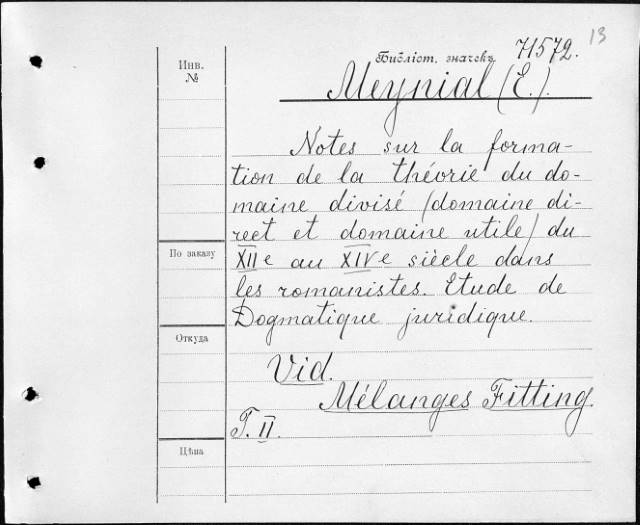 13
Библіот. значекъ 71572.
Инв.
№
Meynial (E.).
Notes sur la forma-
tion de la théorie du do-
maine divisé (domaine di-
rect et domaine utile) du
XIIe au XIVe siècle dans
les romanistes. Etude de
Dogmatique juridique.
Vid.
Mélanges Fitting.
T. II.
По заказу
Откуда
Цѣна